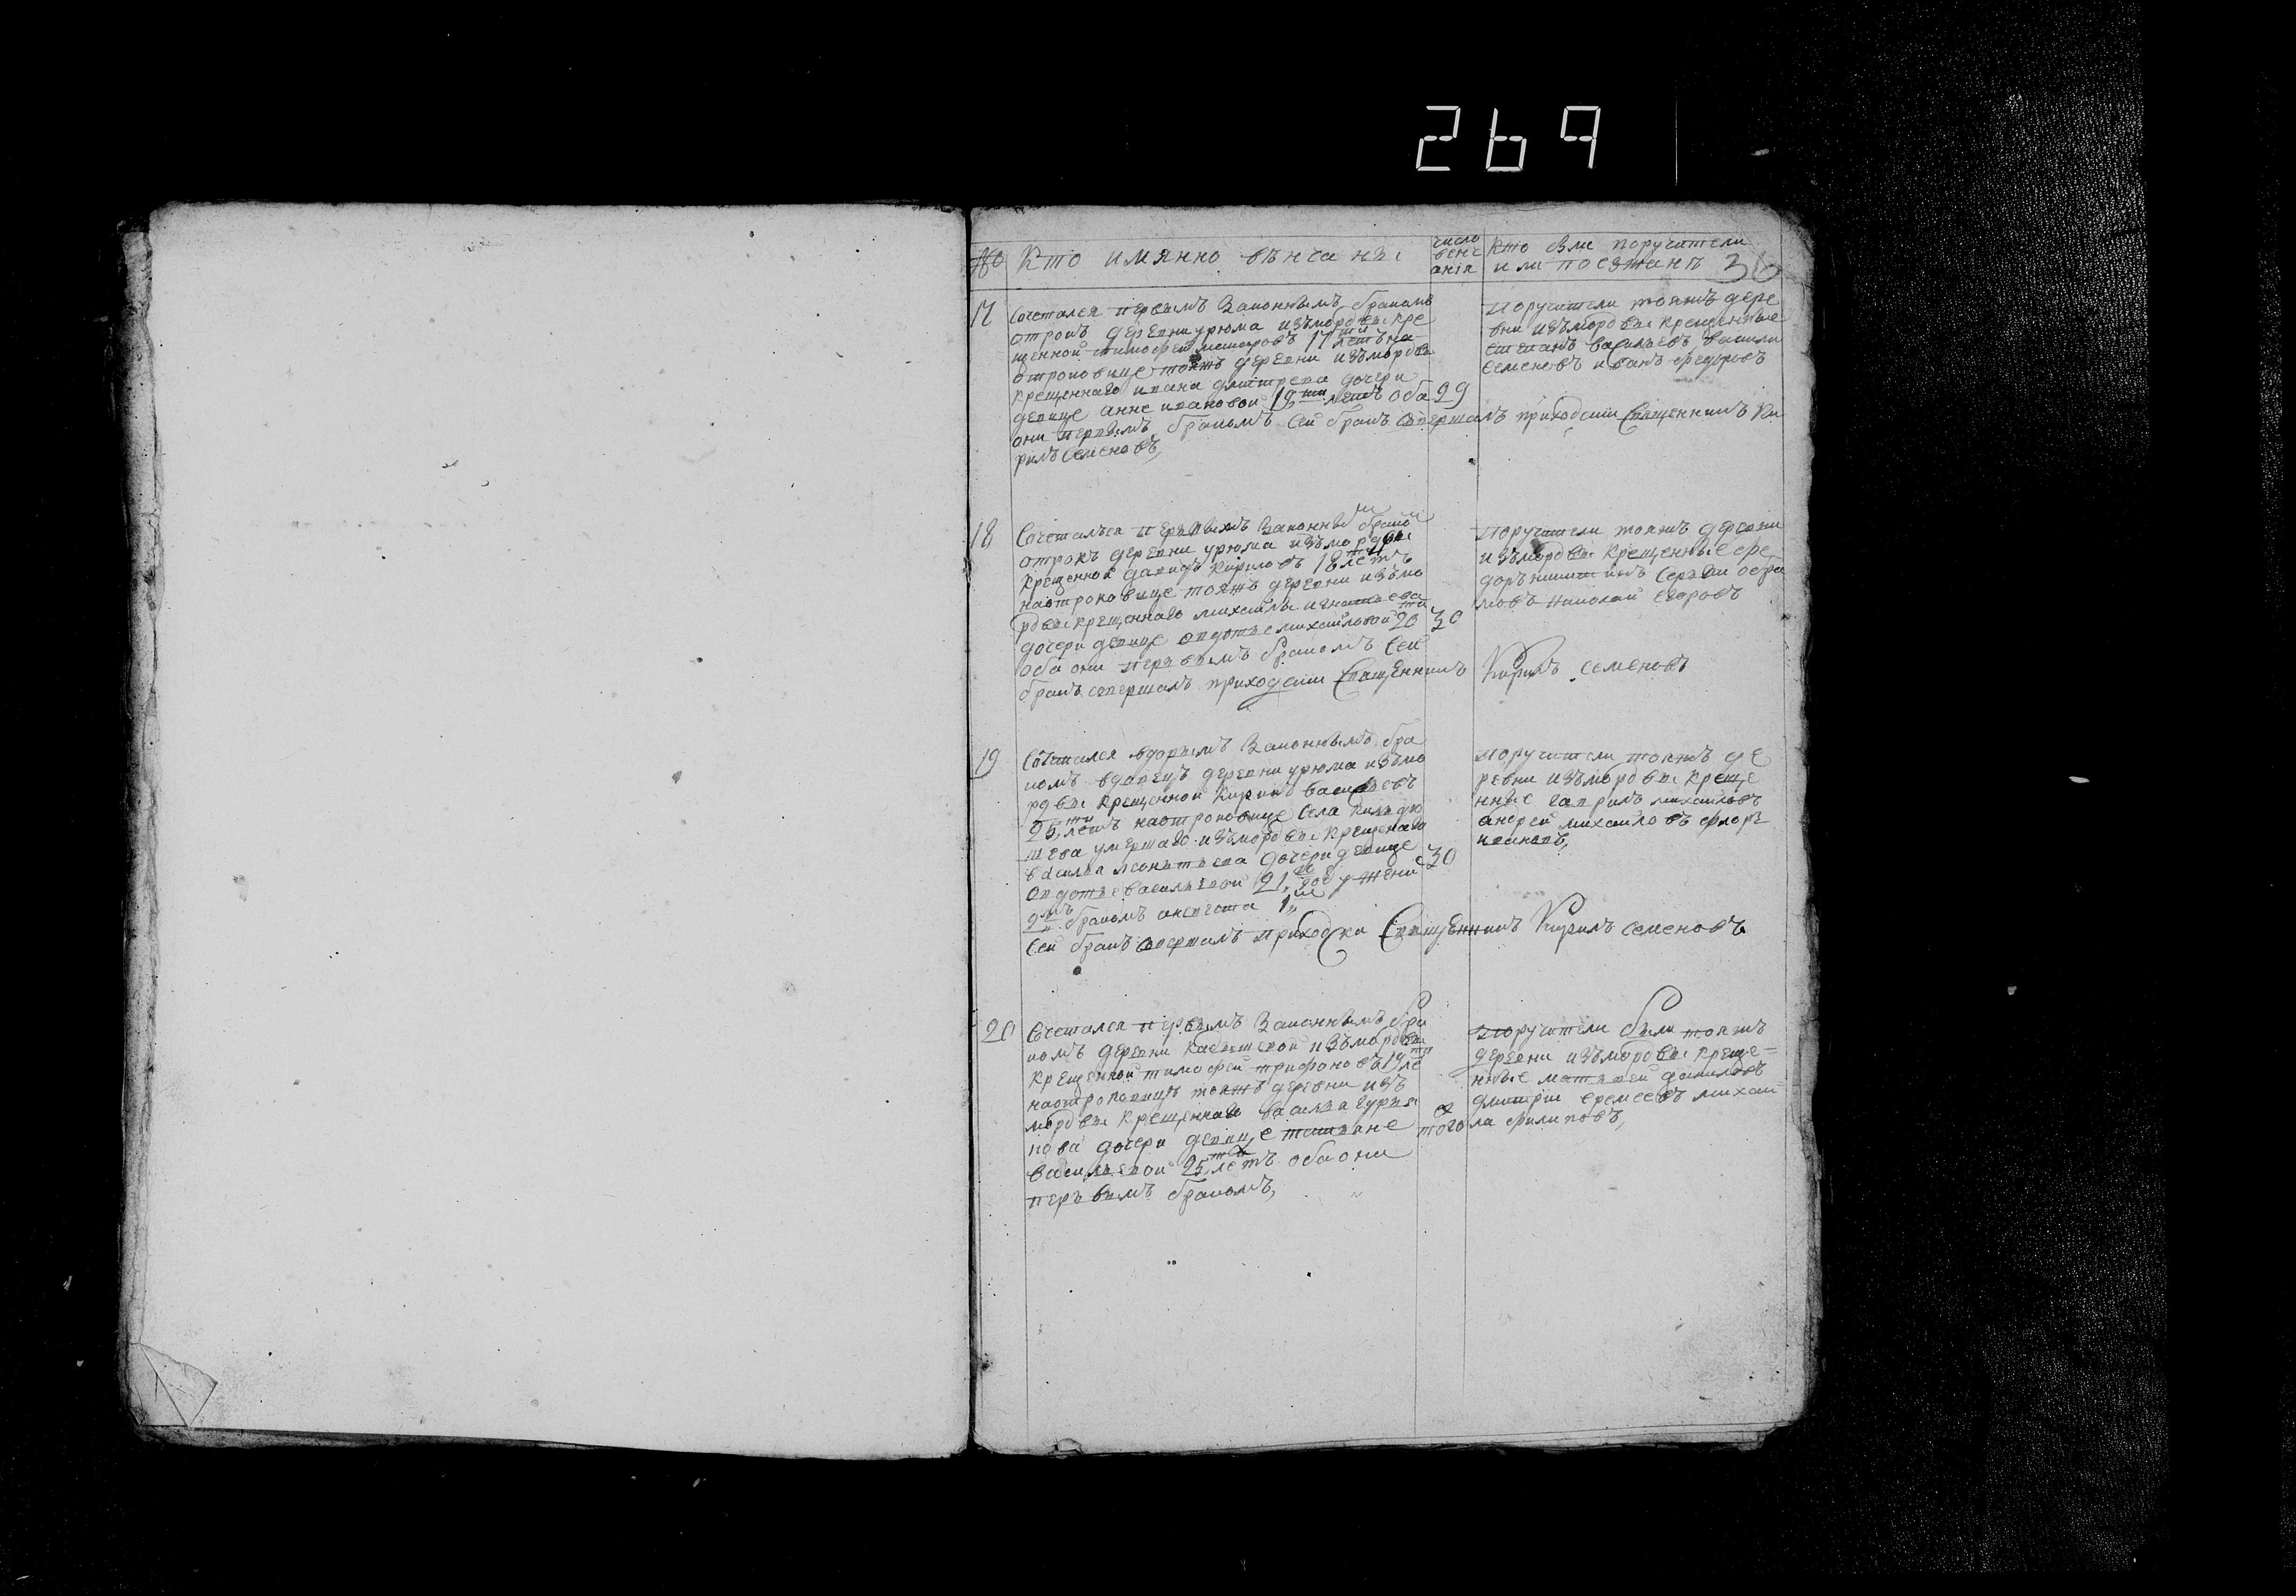 269
№ Кто имянно вѣнчаны
число венчания
Кто были поручители или поезжанѣ 30
17
Сочетался первымъ Законнымъ бракомъ
отрокъ деревни урюма изъ мордвы кре
щенной тимофей 17ти летъ на
отроковице тояжъ деревни изъ мордвы
крещеннаго ивана дмитрева дочери
девице анне ивановой 19ти летъ оба
они первымъ бракомъ Сей бракъ совершалъ приходский Священникъ Ки
рилъ Семеновъ,
29
Поручители тояжъ дере
вни изъ мордвы крещенные
степанъ васильевъ васили
семеновъ иванъ федоровъ
18
Сочетался первымъ Законнымъ бракомъ
отрокъ деревни урюма изъ мордвы
крещенной давидъ Кириловъ 18 летъ
наотроковице тояжъ деревни изъ мо
рдвы крещеннаго михаила игнатьева
дочери девице авдотье михаиловой 20ти
оба они первымъ бракомъ Сей
бракъ совершалъ приходский Священникъ Кирилъ семеновъ
30
Поручители тояжъ деревни
изъ мордвы крещенные фе
доръ никитинъ Сергей
николай Егоровъ
19
Сочетался вторымъ Законнымъ бра
комъ вдовецъ деревни урюма изъ мо
рдвы крещенной Кирила васильевъ
25ти летъ наотроковице села кильдю
шева умершаго изъ мордвы крещенаго
василья леонтьева дочери девице
авдотье васильевой 21го году жени
2мъ бракомъ а невеста 1мъ
Сей бракъ совершалъ приходски Священникъ Кирилъ семеновъ
30
Поручители тояжъ де
ревни изъ мордвы креще
нные гаврилъ михаиловъ
андрей михаиловъ
ивановъ,
20
Сочетался первымъ Законнымъ бра
комъ деревни изъ мордвы
крещенной тимофей трифоновъ 19ти ле
наотроковице тояжъ деревни изъ
мордвы крещеннаго василья гурья
нова дочери девице татьяне
васильевой 25ти летъ оба они
первымъ бракомъ,
того
Поручители были тояжъ
деревни изъ мордвы креще=
нные матвей даниловъ
дмитрий еремеевъ михаи
ла филиповъ,